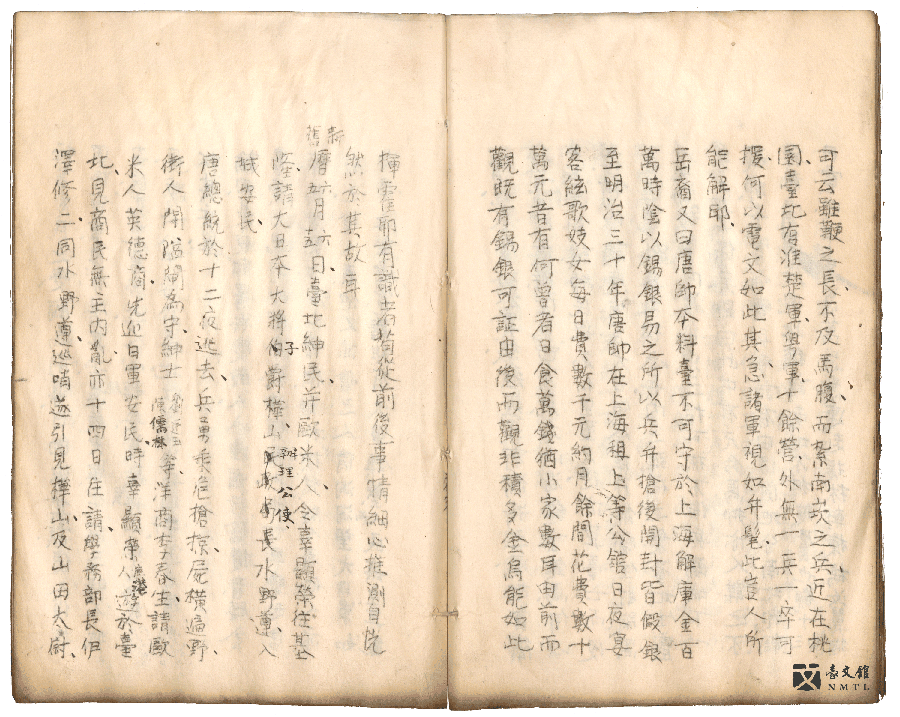 可云雖鞭之長、不及馬腹、而紮南崁之兵、近在桃
園、臺北有淮楚軍、粵軍、十餘營、外無一兵一卒可
援、何以電文如此其急、諸軍視如弁髦、此豈人所
能解耶、
岳裔又曰唐帥本料臺不可守於上海解庫金百
萬時陰以錫銀易之所以兵弁搶後開封皆假銀
至明治三十年唐帥在上海租上等公館日夜宴
客絃歌妓女每日費數千元約月餘間花費數十
萬元昔有何曾者日食萬錢猶小家數耳由前而
觀既有錫銀可証由後而觀非積多金烏能如此
揮霍耶有識者質從前後事情細心推測自恍
然於其故耳
新
舊
曆五六月五六日、臺北紳民、并歐米人、令辜顯榮往基
隆、請大日本大將伯子爵樺山、民政局長水野遵、入
辦理公使
城安民、
唐總統於十二夜逃去、兵勇乘危搶掠、屍橫遍野、
街人閉隘閘為守、紳士
劉廷玉
陳儒林
等、洋商李春生、請歐
米人英德商、先迎日軍安民、時辜顯榮人
港
遊於臺
北、見商民無主、內亂、亦十四日往請、學務部長伊
澤修二、同水野遵、巡哨、遂引見樺山、及山田大尉、
臺文館
NMTL